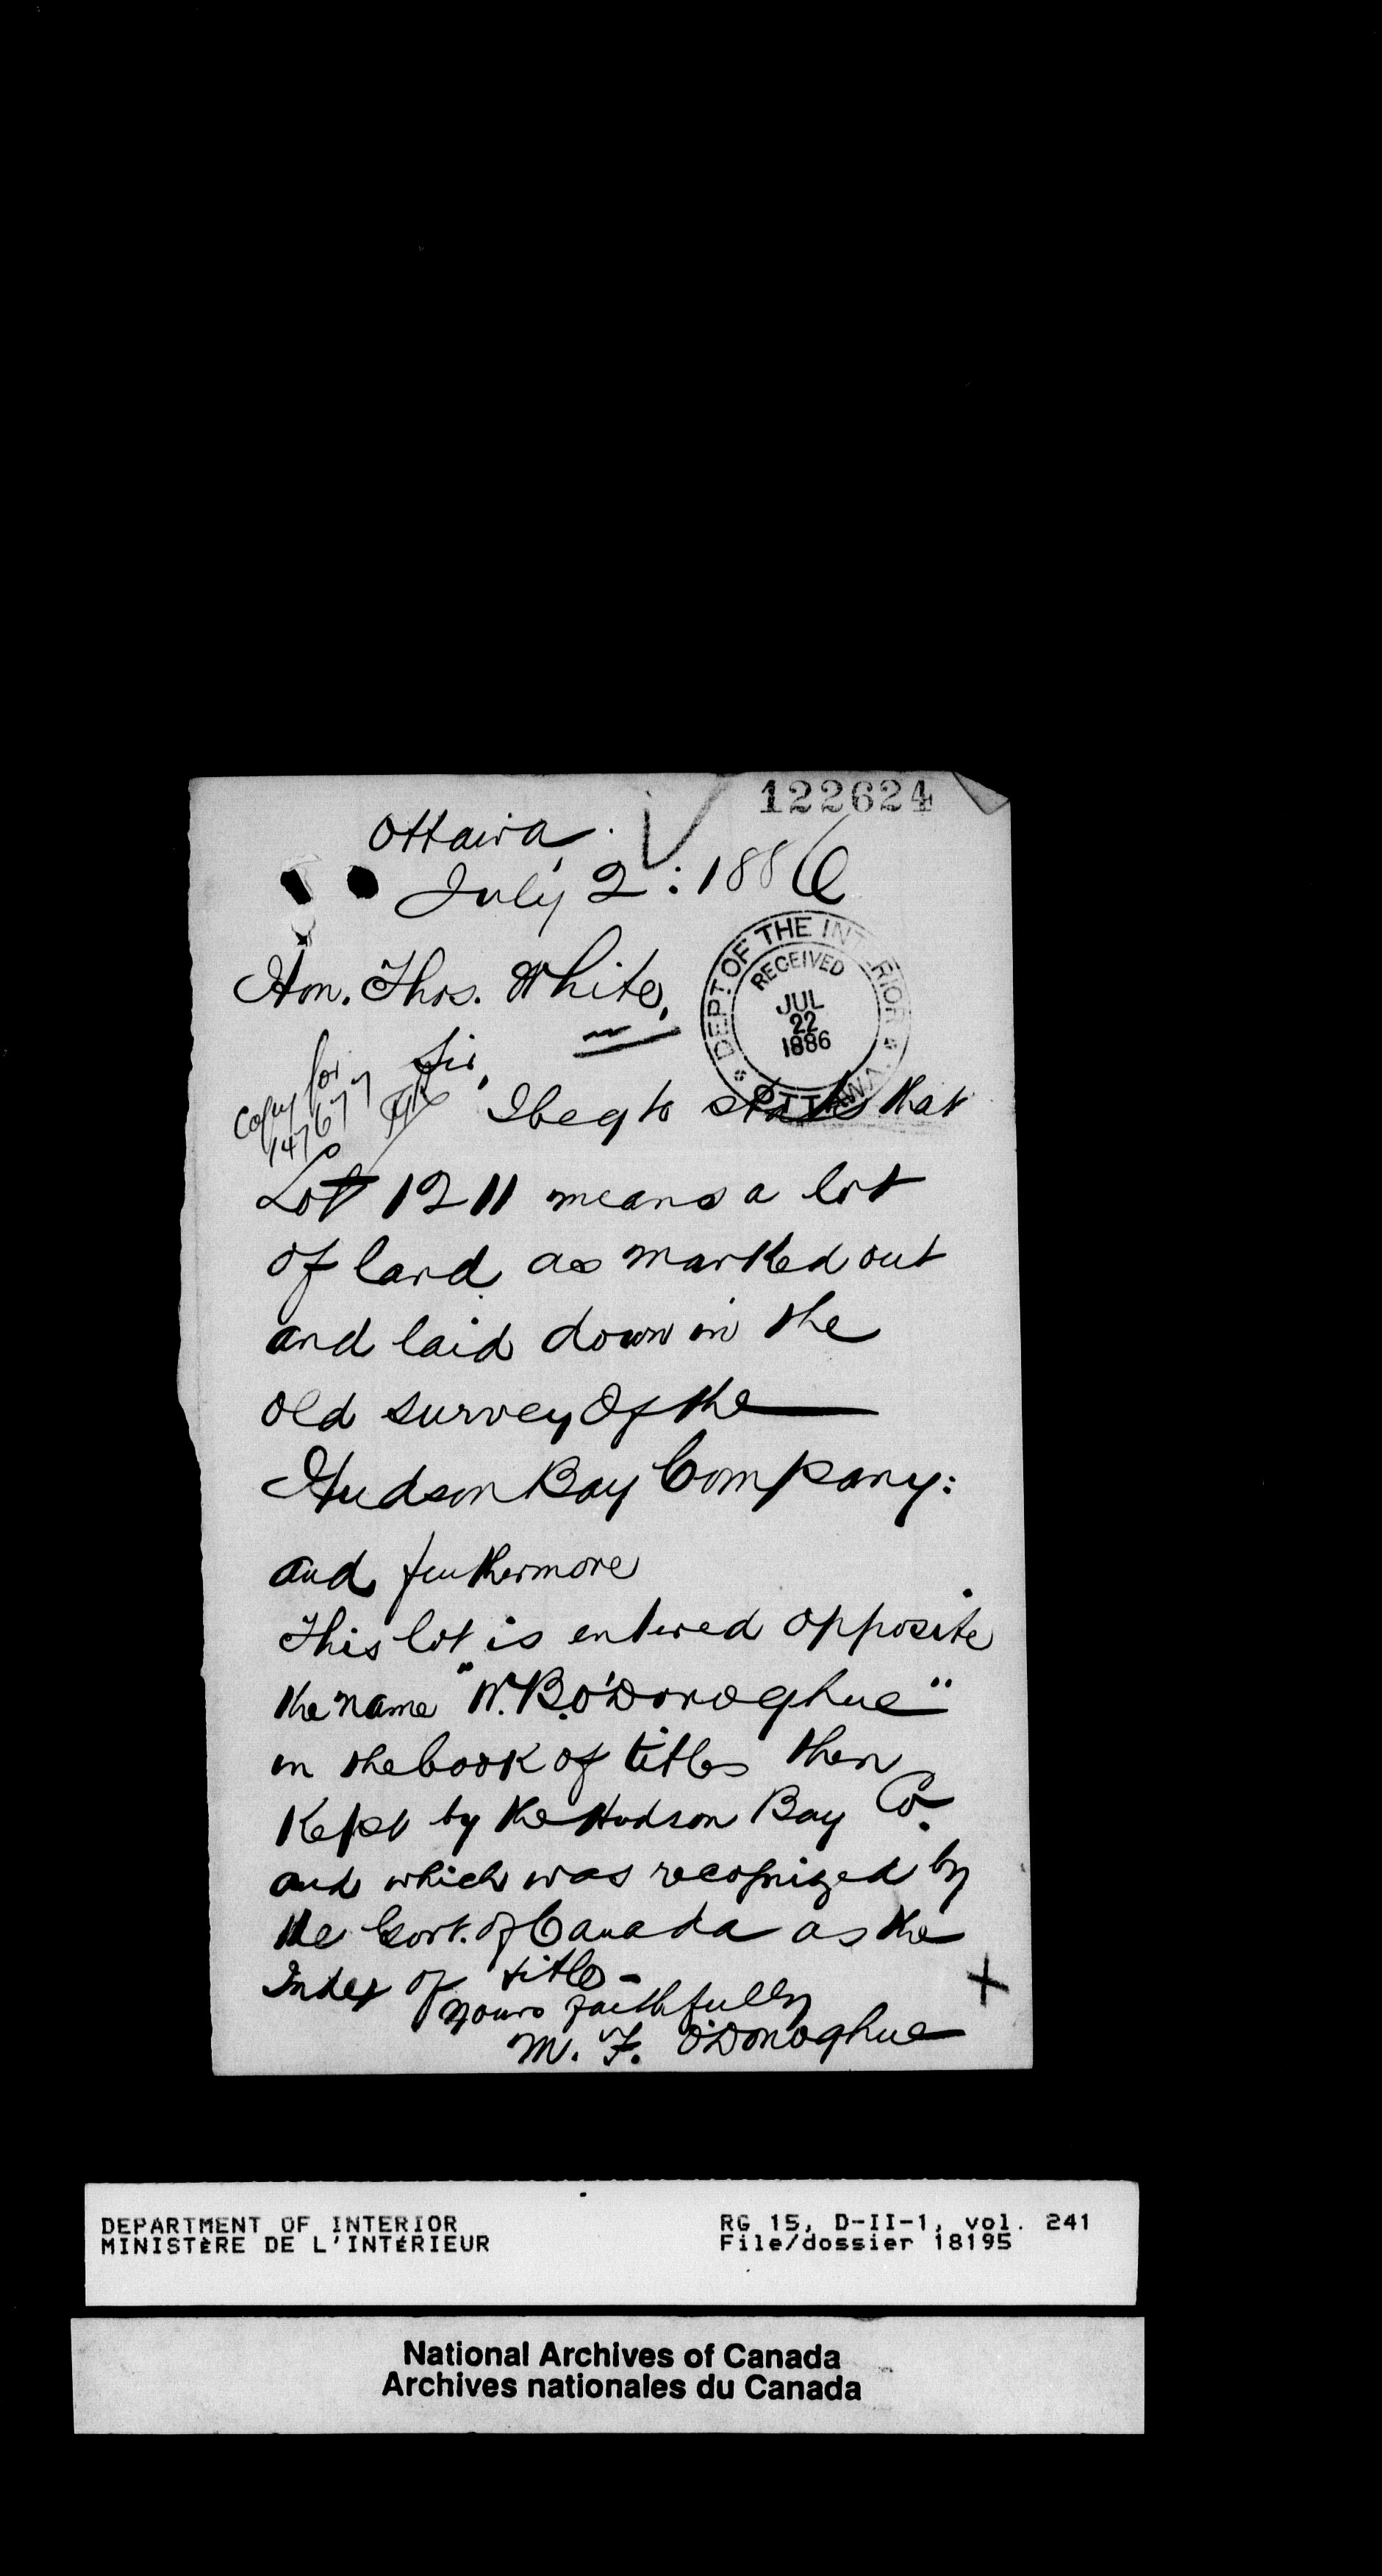 122624
Ottawa
July 2: 1886
Hon. Thos. White,
DEPT. OF THE INTERIOR
RECEIVED
JUL
22
1886
OTTAWA.
Sir,
Copy for
147677
I beg to state that
Lot 1211 means a lot
of land as marked out
and laid down in the
old survey of the
Hudson Bay Company:
and furthermore
This lot is entered opposite
the name "W. B. O'Donoghue"
in the book of titles then
Kept by the Hudson Bay Co.
and which was recognized by
the Govt. of Canada as the
Index of title -
yours faithfully
M. F. O'Donoghue
DEPARTMENT OF INTERIOR
MINISTÈRE DE L'INTÉRIEUR
RG 15, D-II-1, vol. 241
File/dossier 18195
National Archives of Canada
Archives nationales du Canada